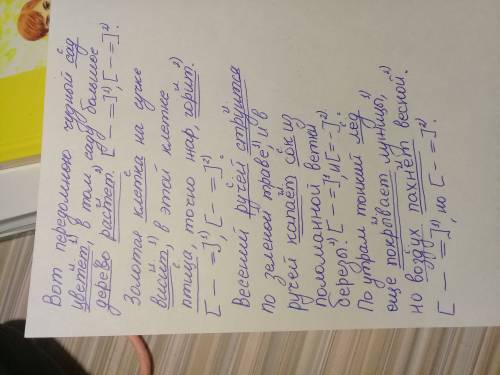 Вот передомною чудной сад
цветет,¹⁾ в том саду большое
дерево растет.²⁾ [— =]¹⁾, [— =]²⁾.
Золотая клетка на сучке
висит,¹⁾ в этой клетке
птица, точно жар, горит.²⁾
[— =]¹⁾, [— =]²⁾.
Весений ручей струится
по зеленой траве,¹⁾ и в
ручей капает сок из
поломанной ветки
березы.²⁾ [— =]¹⁾, и [— =]²⁾.
По утрам тонкий лед
еще покрывает лужицы,¹⁾
но воздух пахнет весной.²⁾
[— =]¹⁾, но [— =]²⁾.